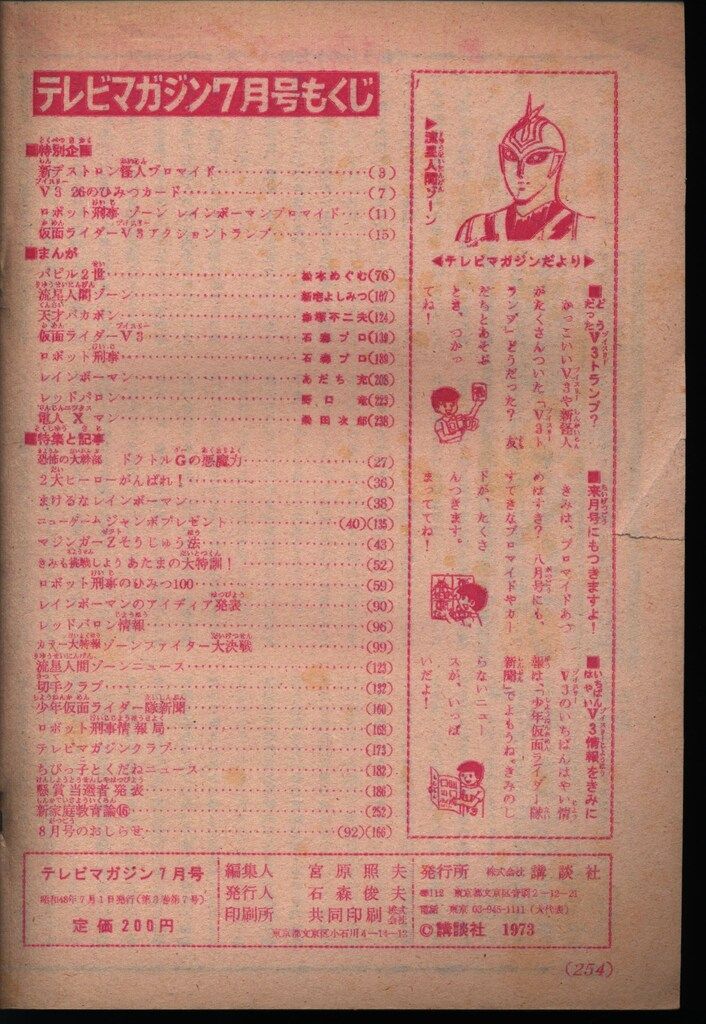 テレビマガジン7月号もくじ
■特別企画
新デストロン怪人ブロマイド(3)
V3 26のひみつカード(7)
ロボット刑事 ゾーン レインボーマンブロマイド(11)
仮面ライダーV3アクショントランプ(15)
■まんが
バビル2世 松本めぐむ(76)
流星人間ゾーン(107)
天才バカボン 赤塚不二夫(124)
仮面ライダーV3 石森プロ(139)
ロボット刑事 石森プロ(189)
レインボーマン あだち充(208)
レッドバロン 野口竜(223)
電人Xマン 桑田次郎(238)
■特集と記事
恐怖の大幹部 ドクトルGの悪魔力(27)
2大ヒーローがんばれ!(36)
まけるなレインボーマン(38)
ニューゲームジャンボプレゼント(40)(135)
マジンガーZそうじゅう法(43)
きみも挑戦しよう あたまの大特訓!(52)
ロボット刑事のひみつ100(59)
レインボーマンのアイディア発表(90)
レッドバロン情報(96)
カラー大特報ゾーンファイター大決戦(99)
流星人間ゾーンニュース(123)
切手クラブ(132)
少年仮面ライダー隊新聞(160)
ロボット刑事情報局(168)
テレビマガジンクラブ(173)
ちびっ子とくだねニュース(182)
懸賞当選者発表(186)
新家庭教育論⑯(252)
8月号のおしらせ(92)(166)
▶流星人間ゾーン
◀テレビマガジンだより▶
■どうだったV3トランプ?
かっこいいV3や新怪人
がたくさんついた「V3ト
ランプ」どうだった? 友
だちとあそぶ
とき、つかっ
てね!
■来月号にもつきますよ!
きみは、ブロマイドあつ
めはすき? 八月号にも、
すてきなブロマイドやカー
ドが、たくさ
んつきます。
まっててね!
■いちばんはやいV3情報をきみに
V3のいちばんはやい情
報は「少年仮面ライダー隊
新聞」でよもうね。きみのし
らないニュー
スが、いっぱ
いだよ!
テレビマガジン7月号
昭和48年7月1日発行(第3巻第7号)
定価200円
編集人 宮原照夫
発行人 石森俊夫
印刷所 共同印刷株式会社
東京都文京区小石川4-14-12
発行所 株式会社 講談社
〒112 東京都文京区音羽2-12-21
電話 東京 03-945-1111(大代表)
©講談社 1973
(254)